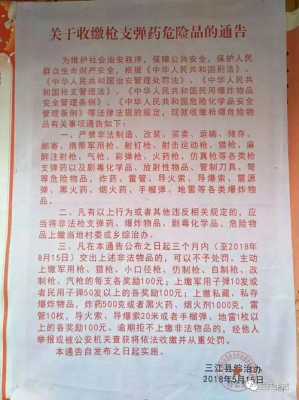 关于收缴枪支弹药危险品的通告
为维护社会治安秩序，保障公共安全，保护人民
群众生命财产安全，根据《中华人民共和国刑法》、
《中华人民共和国治安管理处罚法》、《中华人民共
和国枪支管理法》、《中华人民共和国民用爆炸物品
安全管理条例》、《中华人民共和国危险化学品安全
管理条例》等法律法规的规定，现就收缴枪弹危险物
品有关事项通告如下：
一、严禁非法制造、改装、买卖、运输、储存、
邮寄、携带军用枪、射钉枪、射击运动枪、猎枪、麻
醉注射枪、气枪、彩弹枪、火药枪、仿真枪等各类枪
支弹药以及剧毒化学品、放射性物品、管制刀具、弩
等危险物品，炸药、雷管、导火索、导爆索、震源
弹、黑火药、烟火药、手榴弹、地雷等各类爆炸物
品。
二、凡有以上行为或者其他违反相关规定的，应
当将非法枪支弹药、爆炸物品、剧毒化学品、危险物
品上缴当地村委或乡综治办。
三、凡在本通告公布之日起三个月内（至2018年
8月15日）交出上述非法物品的，可以不予处罚。主动
上缴军用枪、猎枪、小口径枪、仿制枪、自制枪、改
制枪、气枪的每支各奖励100元；上缴军用子弹10发或
者民用子弹50发以上的各奖励100元；上缴私藏、私存
爆炸物品，炸药500克或者黑火药、烟火剂1000克，雷
管10枚，导火索、导爆索20米或者手榴弹、地雷1枚以
上的各奖励100元。逾期拒不上缴非法物品的，经他人
举报或被公安机关查获将依法收缴并从重处罚。
本通告自发布之日起实施。
三江县综治办
2018年5月15日